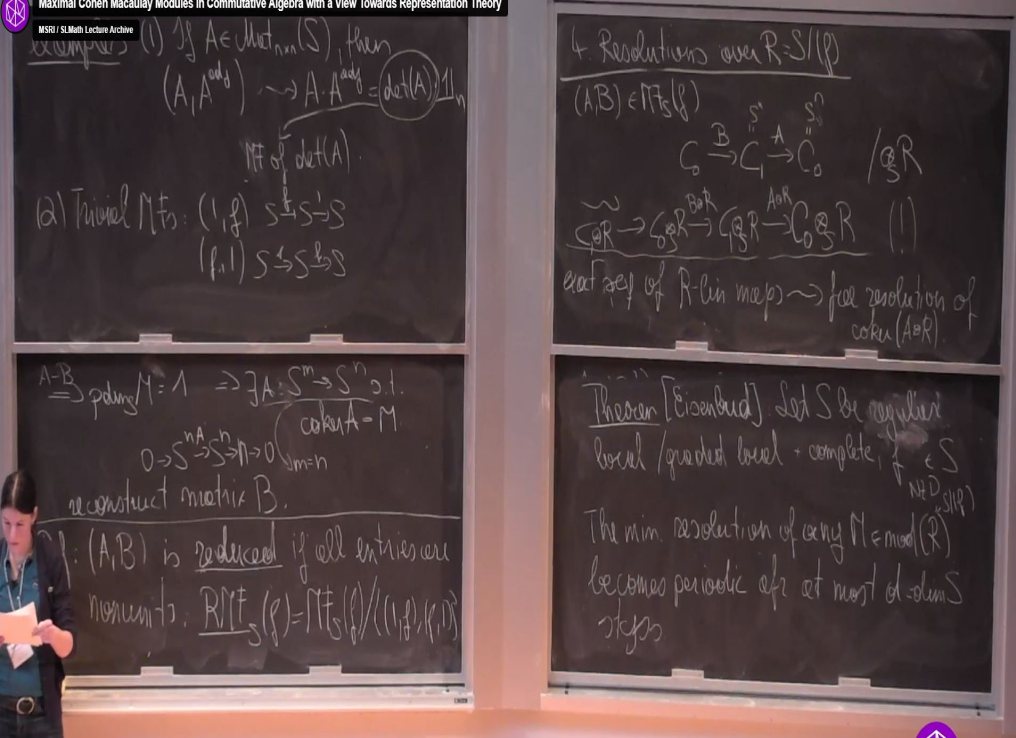 Maximal Cohen Macaulay Modules in Commutative Algebra with a View Towards Representation Theory
MSRI / SLMath Lecture Archive
examples (1) If A ∈ Mat_{n×n}(S), then
(A, A^{adj}) ⇝ A·A^{adj} = det(A)·1_n
MF of det(A).
(2) Trivial MFs: (1,f) S →^f S →^1 S
(f,1) S →^1 S →^f S
A-B ⇒ pdim_S M = 1 ⇒ ∃ A: S^m → S^n s.t.
coker A = M
0 → S^n →^A S^n → M → 0
m=n
reconstruct matrix B.
(A,B) is reduced if all entries are
nonunits. RMF_S(f) = MF_S(f)/{(1,f),(f,1)}
4. Resolutions over R=S/(f)
(A,B) ∈ MF_S(f)
S^n S^n
C_0 →^B C_1 →^A C_0 /⊗_S R
C_1⊗R → C_0⊗_S R →^{B⊗R} C_1⊗_S R →^{A⊗R} C_0⊗_S R (!)
exact seq of R-lin maps ⇝ free resolution of
coker(A⊗R).
Theorem [Eisenbud]. Let S be regular
local/graded local + complete, f ∈ S
NZD
S/(f)
The min. resolution of any M ∈ mod(R)
becomes periodic after at most d=dim S
steps